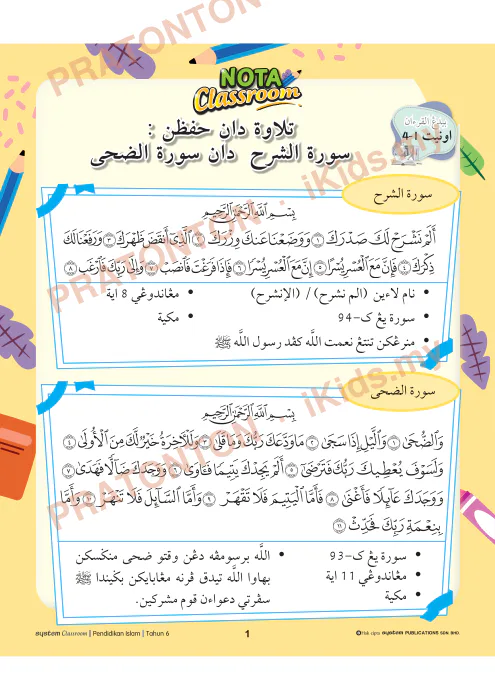 PRATONTON : iKids.my
NOTA
Classroom
بيدڠ القرءان
اونيت 1-4
تلاوة دان حفظن :
سورة الشرح دان سورة الضحى
سورة الشرح
بِسْمِ ٱللَّهِ ٱلرَّحْمَٰنِ ٱلرَّحِيمِ
أَلَمْ نَشْرَحْ لَكَ صَدْرَكَ ١ وَوَضَعْنَا عَنكَ وِزْرَكَ ٢ ٱلَّذِىٓ أَنقَضَ ظَهْرَكَ ٣ وَرَفَعْنَا لَكَ
ذِكْرَكَ ٤ فَإِنَّ مَعَ ٱلْعُسْرِ يُسْرًا ٥ إِنَّ مَعَ ٱلْعُسْرِ يُسْرًا ٦ فَإِذَا فَرَغْتَ فَٱنصَبْ ٧ وَإِلَىٰ رَبِّكَ فَٱرْغَب ٨
• نام لاءين (الم نشرح) / (الإنشرح)
• مڠاندوڠي 8 اية
• سورة يڠ ك-94
• مكية
• منرڠكن تنتڠ نعمت اللّه كڤد رسول اللّه ﷺ
سورة الضحى
بِسْمِ ٱللَّهِ ٱلرَّحْمَٰنِ ٱلرَّحِيمِ
وَٱلضُّحَىٰ ١ وَٱلَّيْلِ إِذَا سَجَىٰ ٢ مَا وَدَّعَكَ رَبُّكَ وَمَا قَلَىٰ ٣ وَلَلْءَاخِرَةُ خَيْرٌ لَّكَ مِنَ ٱلْأُولَىٰ ٤
وَلَسَوْفَ يُعْطِيكَ رَبُّكَ فَتَرْضَىٰٓ ٥ أَلَمْ يَجِدْكَ يَتِيمًا فَـَٔاوَىٰ ٦ وَوَجَدَكَ ضَآلًّا فَهَدَىٰ ٧
وَوَجَدَكَ عَآئِلًا فَأَغْنَىٰ ٨ فَأَمَّا ٱلْيَتِيمَ فَلَا تَقْهَرْ ٩ وَأَمَّا ٱلسَّآئِلَ فَلَا تَنْهَرْ ١٠ وَأَمَّا
بِنِعْمَةِ رَبِّكَ فَحَدِّثْ ١١
• سورة يڠ ك-93
• مڠاندوڠي 11 اية
• مكية
• اللّه برسومڤه دڠن وقتو ضحى منڬسكن
بهاوا اللّه تيدق ڤرنه مڠابايكن بڬيندا ﷺ
سڤرتي دعواءن قوم مشركين.
system Classroom | Pendidikan Islam | Tahun 6
1
Hak cipta system PUBLICATIONS SDN BHD